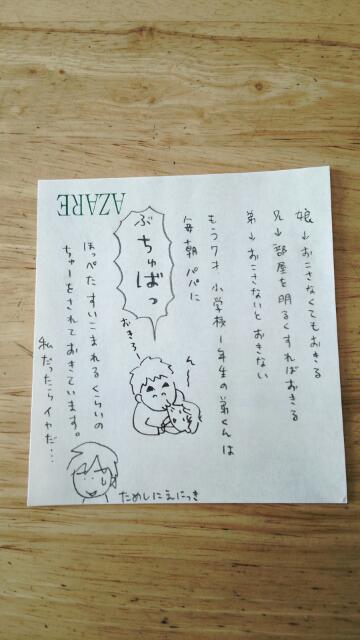 娘→おこさなくてもおきる
兄→部屋を明るくすればおきる
弟→おこさないとおきない
もう7才、小学校1年生の弟くんは
毎朝パパに
ぶちゅばっ
おきろー
ん〜
ほっぺたすいこまれるくらいの
ちゅーをされておきています。
私だったらイヤだ…
ためしにえにっき
AZARE